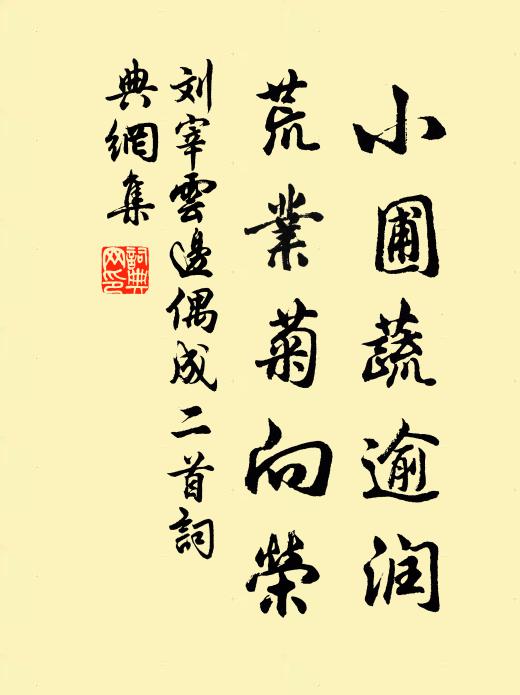 小圃蔬逾润
荒业菊向荣
刘宰雲邊偶成二首詞
典網集
詞典網印